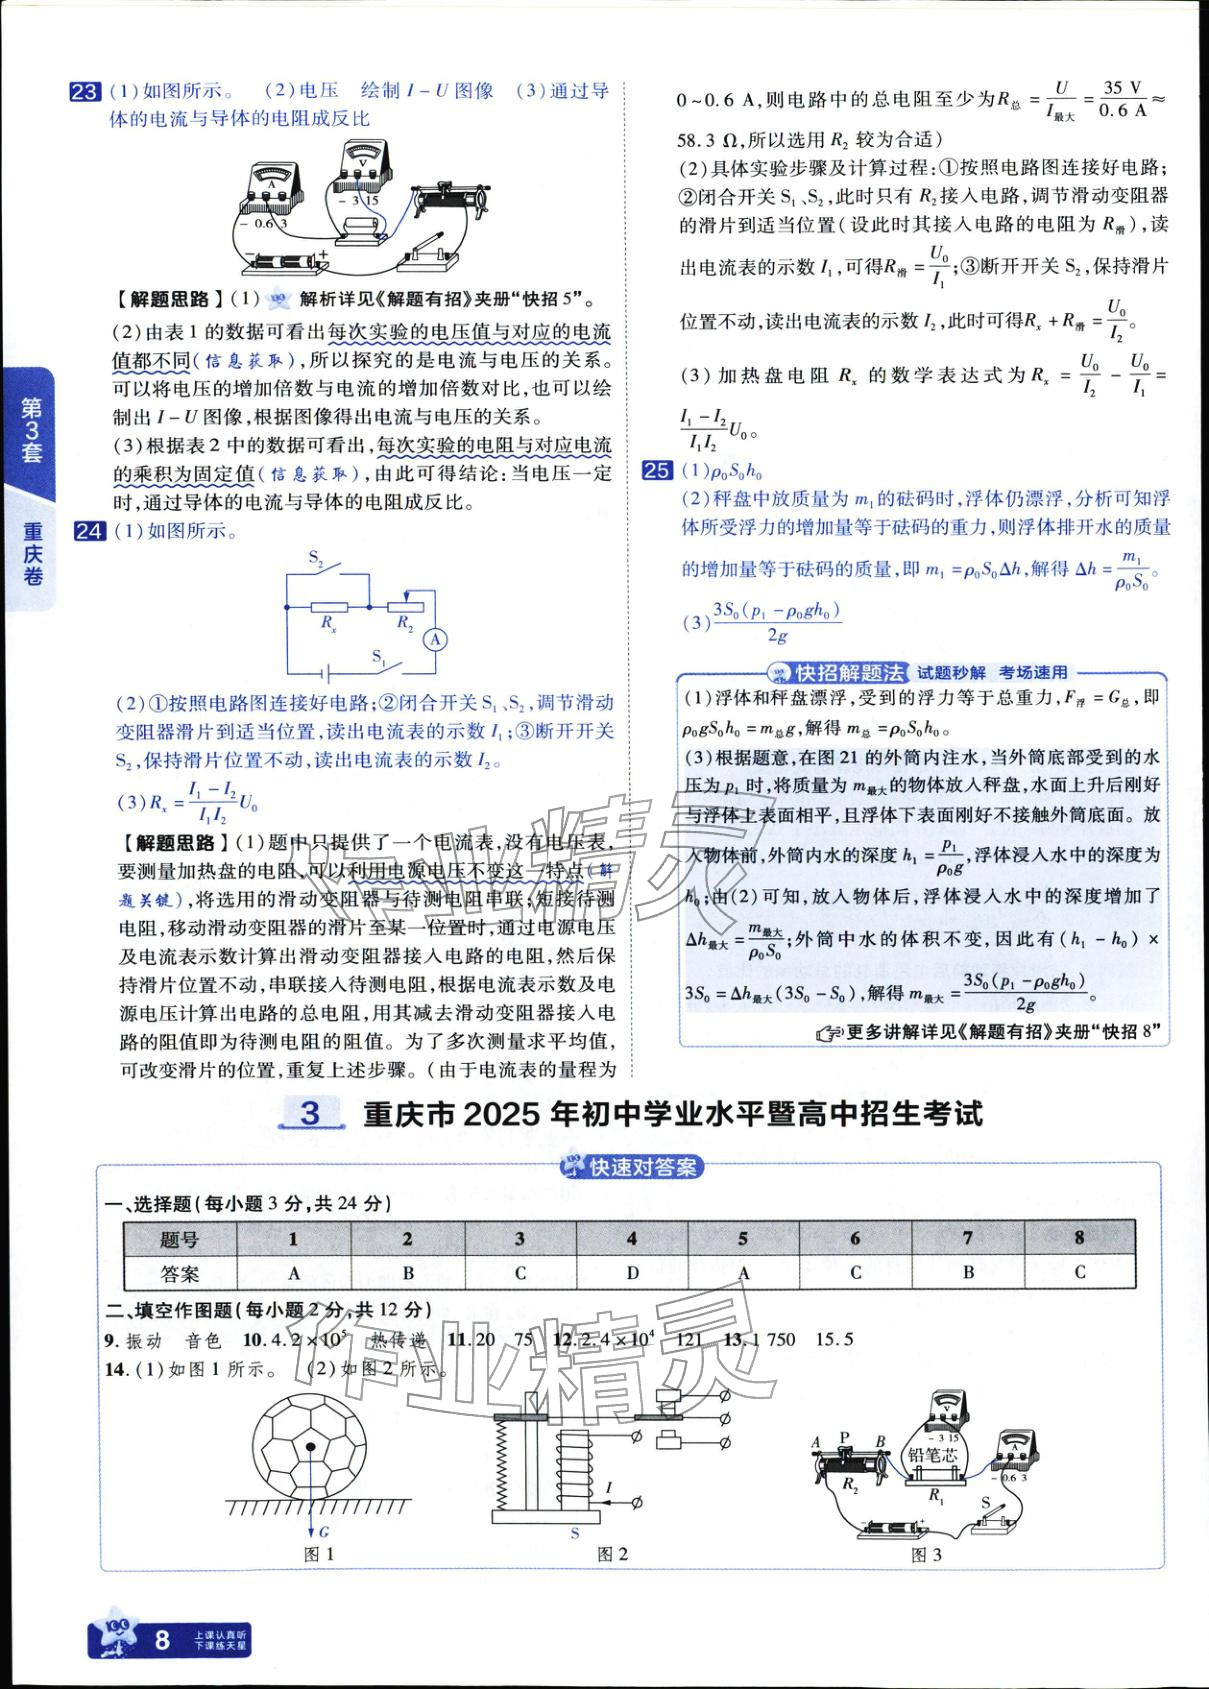 第3套
重庆卷
23 (1)如图所示。 (2)电压 绘制 I-U 图像 (3)通过导
体的电流与导体的电阻成反比
A
V
- 3 15
- 0.6 3
- +
【解题思路】(1) 解析详见《解题有招》夹册“快招5”。
(2)由表1的数据可看出每次实验的电压值与对应的电流
值都不同(信息获取),所以探究的是电流与电压的关系。
可以将电压的增加倍数与电流的增加倍数对比,也可以绘
制出 I-U 图像,根据图像得出电流与电压的关系。
(3)根据表2中的数据可看出,每次实验的电阻与对应电流
的乘积为固定值(信息获取),由此可得结论:当电压一定
时,通过导体的电流与导体的电阻成反比。
24 (1)如图所示。
S₂
Rₓ R₂
A
S₁
(2)①按照电路图连接好电路;②闭合开关 S₁、S₂,调节滑动
变阻器滑片到适当位置,读出电流表的示数 I₁;③断开开关
S₂,保持滑片位置不动,读出电流表的示数 I₂。
(3) Rₓ = (I₁-I₂)/(I₁I₂) U₀
【解题思路】(1)题中只提供了一个电流表,没有电压表,
要测量加热盘的电阻,可以利用电源电压不变这一特点(解
题关键),将选用的滑动变阻器与待测电阻串联;短接待测
电阻,移动滑动变阻器的滑片至某一位置时,通过电源电压
及电流表示数计算出滑动变阻器接入电路的电阻,然后保
持滑片位置不动,串联接入待测电阻,根据电流表示数及电
源电压计算出电路的总电阻,用其减去滑动变阻器接入电
路的阻值即为待测电阻的阻值。为了多次测量求平均值,
可改变滑片的位置,重复上述步骤。(由于电流表的量程为
0~0.6 A,则电路中的总电阻至少为R总 = U/I最大 = 35 V/0.6 A ≈
58.3 Ω,所以选用 R₂ 较为合适)
(2)具体实验步骤及计算过程:①按照电路图连接好电路;
②闭合开关 S₁、S₂,此时只有 R₂接入电路,调节滑动变阻器
的滑片到适当位置(设此时其接入电路的电阻为 R滑),读
出电流表的示数 I₁,可得R滑 = U₀/I₁;③断开开关 S₂,保持滑片
位置不动,读出电流表的示数 I₂,此时可得Rₓ+R滑 = U₀/I₂。
(3)加热盘电阻 Rₓ 的数学表达式为 Rₓ = U₀/I₂ - U₀/I₁ =
(I₁-I₂)/(I₁I₂) U₀。
25 (1)ρ₀S₀h₀
(2)秤盘中放质量为 m₁的砝码时,浮体仍漂浮,分析可知浮
体所受浮力的增加量等于砝码的重力,则浮体排开水的质量
的增加量等于砝码的质量,即 m₁=ρ₀S₀Δh,解得 Δh = m₁/(ρ₀S₀)。
(3) 3S₀(p₁-ρ₀gh₀)/(2g)
快招解题法 试题秒解 考场速用
(1)浮体和秤盘漂浮,受到的浮力等于总重力,F浮=G总,即
ρ₀gS₀h₀=m总g,解得 m总=ρ₀S₀h₀。
(3)根据题意,在图21的外筒内注水,当外筒底部受到的水
压为 p₁ 时,将质量为 m最大的物体放入秤盘,水面上升后刚好
与浮体上表面相平,且浮体下表面刚好不接触外筒底面。放
入物体前,外筒内水的深度 h₁ = p₁/(ρ₀g),浮体浸入水中的深度为
h₀;由(2)可知,放入物体后,浮体浸入水中的深度增加了
Δh最大 = m最大/(ρ₀S₀);外筒中水的体积不变,因此有(h₁-h₀)×
3S₀=Δh最大(3S₀-S₀),解得 m最大 = 3S₀(p₁-ρ₀gh₀)/(2g)。
更多讲解详见《解题有招》夹册“快招8”
3 重庆市2025年初中学业水平暨高中招生考试
快速对答案
一、选择题(每小题3分,共24分)
题号 1 2 3 4 5 6 7 8
答案 A B C D A C B C
二、填空作图题(每小题2分,共12分)
9.振动 音色 10.4.2×10⁵ 热传递 11.20 75 12.2.4×10⁴ 121 13.1 750 15.5
14.(1)如图1所示。 (2)如图2所示。
G
图1
I
S
图2
V
- 3 15
A P B
铅笔芯
A
- 0.6 3
R₂ R₁
S
- +
图3
作业精灵
作业精灵
8 上课认真听
下课练天星